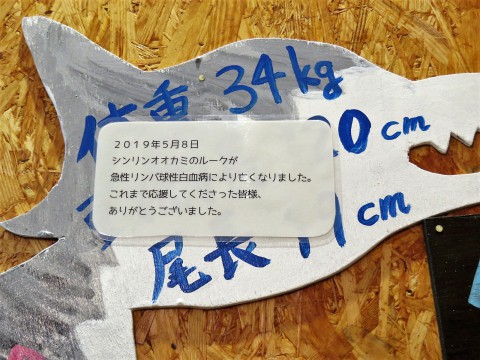 体重 34kg
20cm
２０１９年５月８日
シンリンオオカミのルークが
急性リンパ球性白血病により亡くなりました。
これまで応援してくださった皆様、
ありがとうございました。
尾長 41cm